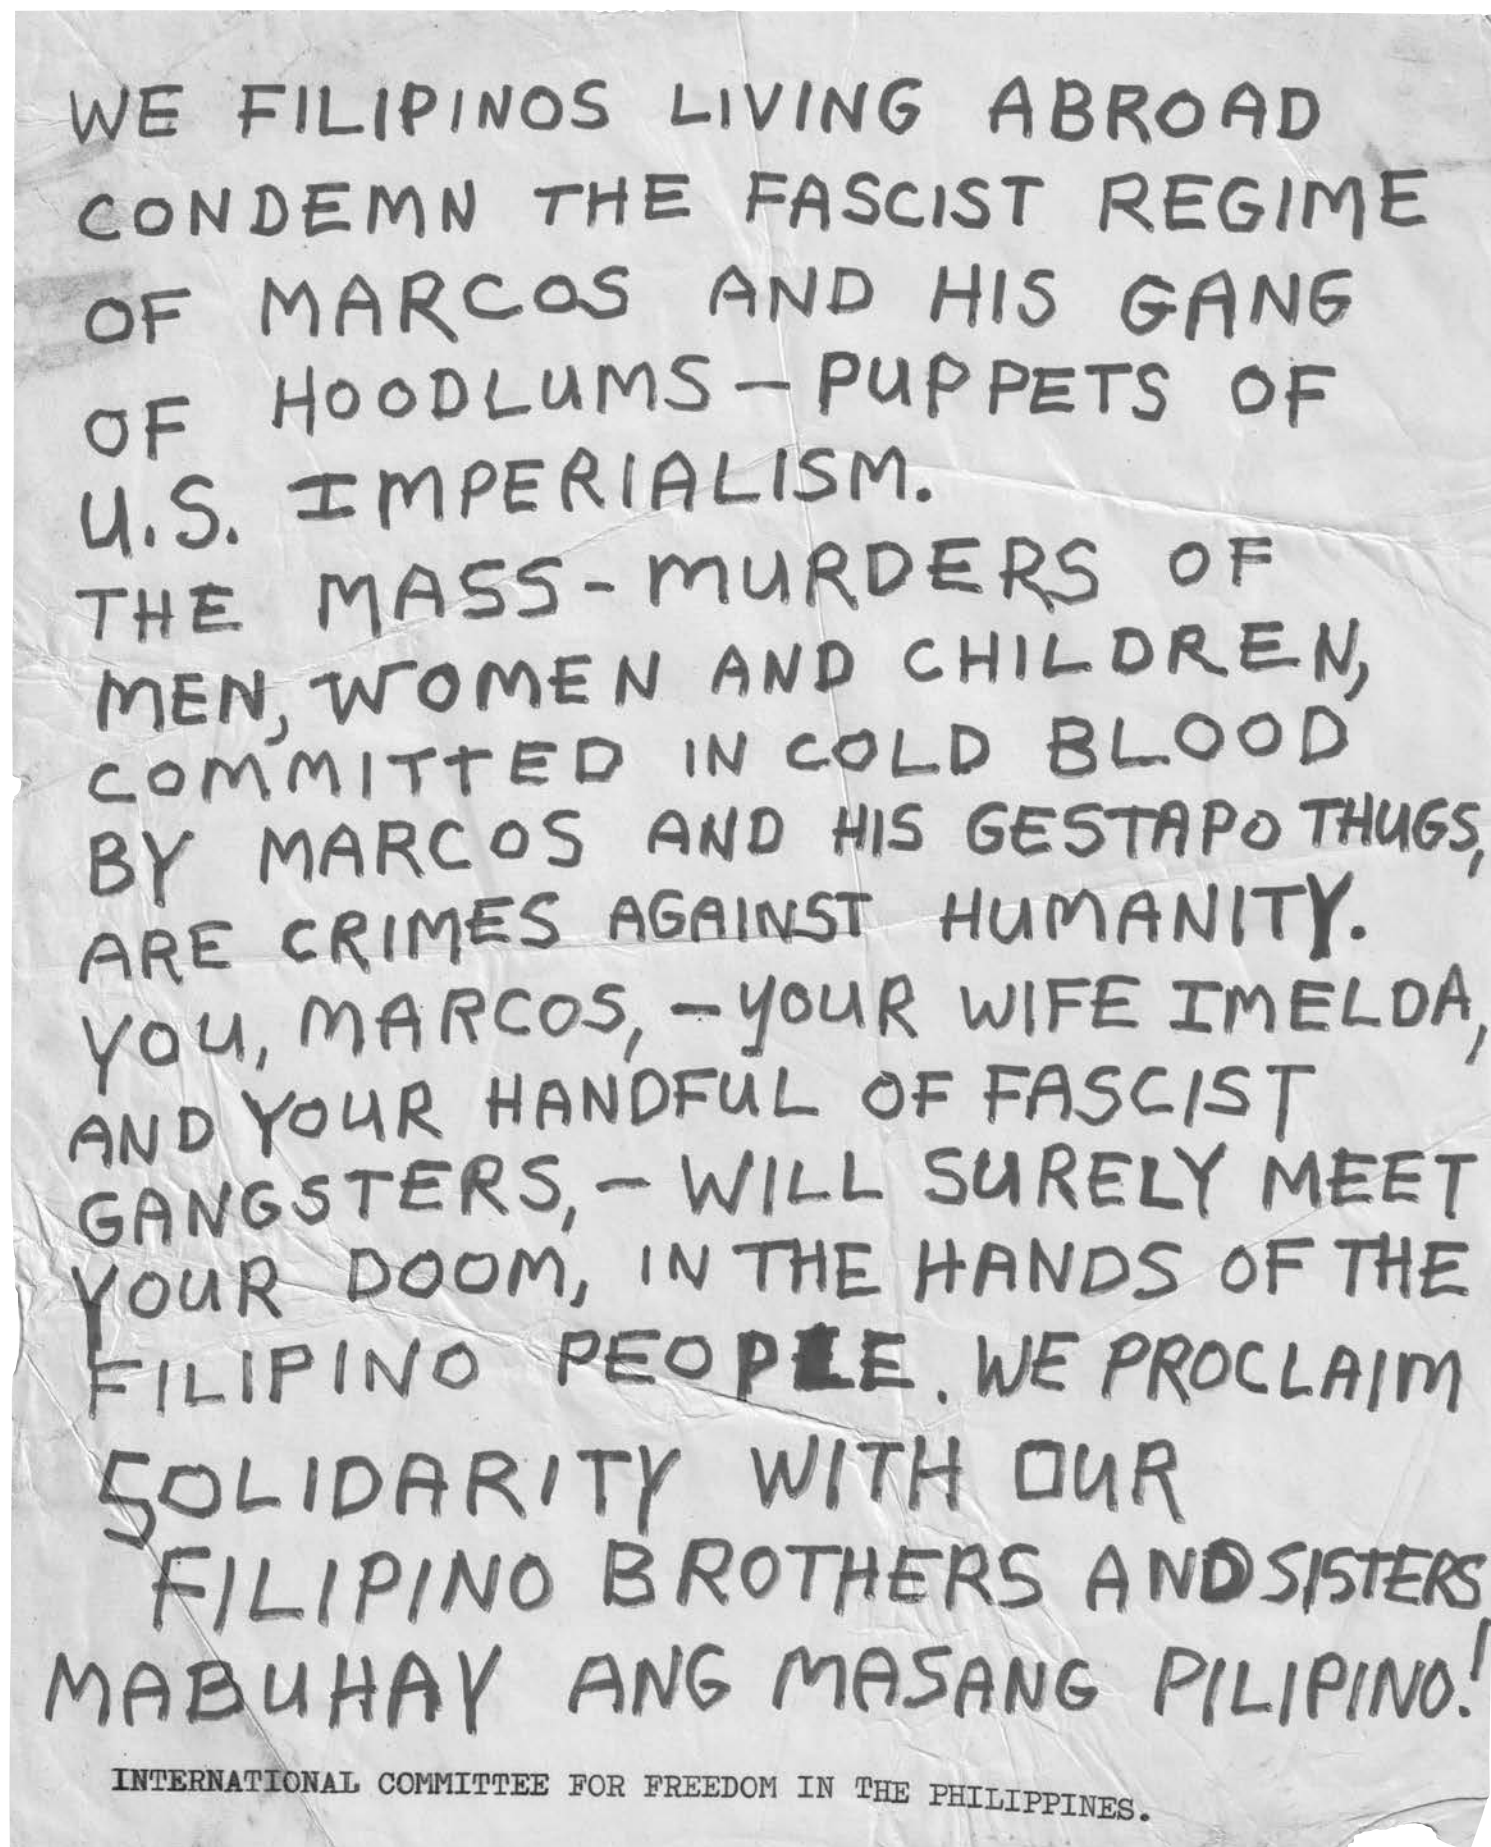 WE FILIPINOS LIVING ABROAD
CONDEMN THE FASCIST REGIME
OF MARCOS AND HIS GANG
OF HOODLUMS – PUPPETS OF
U.S. IMPERIALISM.
THE MASS-MURDERS OF
MEN, WOMEN AND CHILDREN,
COMMITTED IN COLD BLOOD
BY MARCOS AND HIS GESTAPO THUGS,
ARE CRIMES AGAINST HUMANITY.
YOU, MARCOS, – YOUR WIFE IMELDA,
AND YOUR HANDFUL OF FASCIST
GANGSTERS, – WILL SURELY MEET
YOUR DOOM, IN THE HANDS OF THE
FILIPINO PEOPLE. WE PROCLAIM
SOLIDARITY WITH OUR
FILIPINO BROTHERS AND SISTERS!
MABUHAY ANG MASANG PILIPINO!
INTERNATIONAL COMMITTEE FOR FREEDOM IN THE PHILIPPINES.